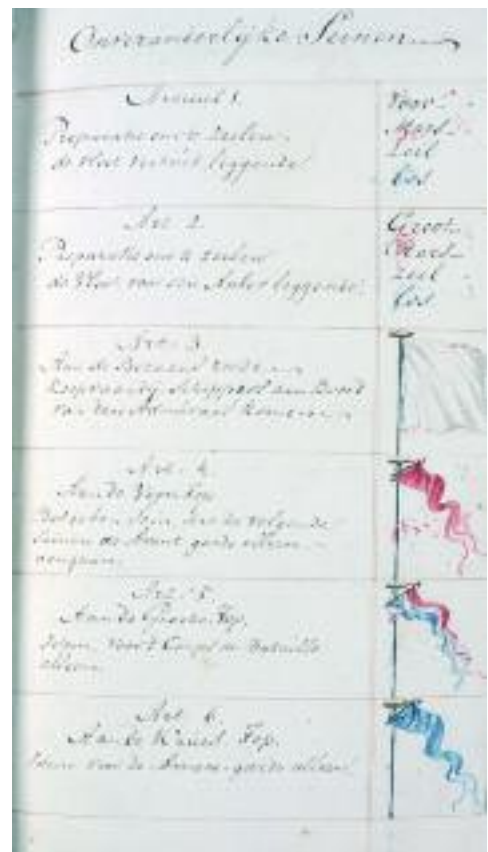 Onveranderlijke Seinen
Articul 1.
Preparatie om te zeilen
de Vloot vertuit leggende
Voor
Mars
Zeil
los
Art. 2.
Preparatie om te zeilen
de Vloot van een Anker leggende
Groot
Mars
zeil
los
Art. 3.
Aan de Bezaans roede
Koopvaardij Schippers aan Boord
van den Admiraal komen
Art. 4.
Aan de Voor top
Seinen de Avant garde alleen
aangaan
Art. 5.
Aan de Groote Top.
Idem, voor 't Corps de Bataille
alleen
Art. 6.
Aan de Kruis Top.
Idem voor de Arriere-garde alleen